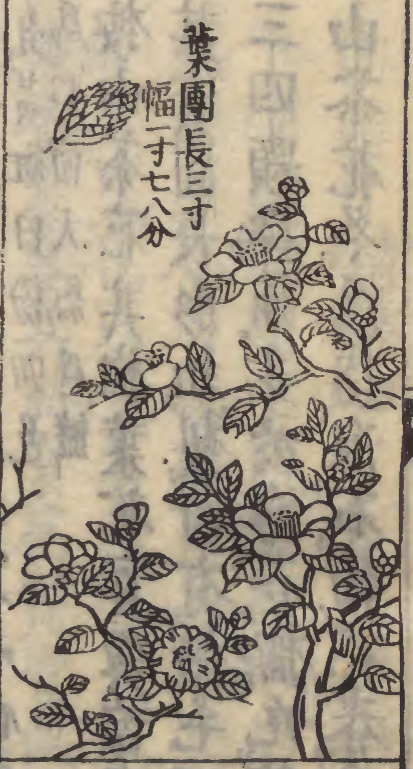 葉團長三寸
幅一寸七八分